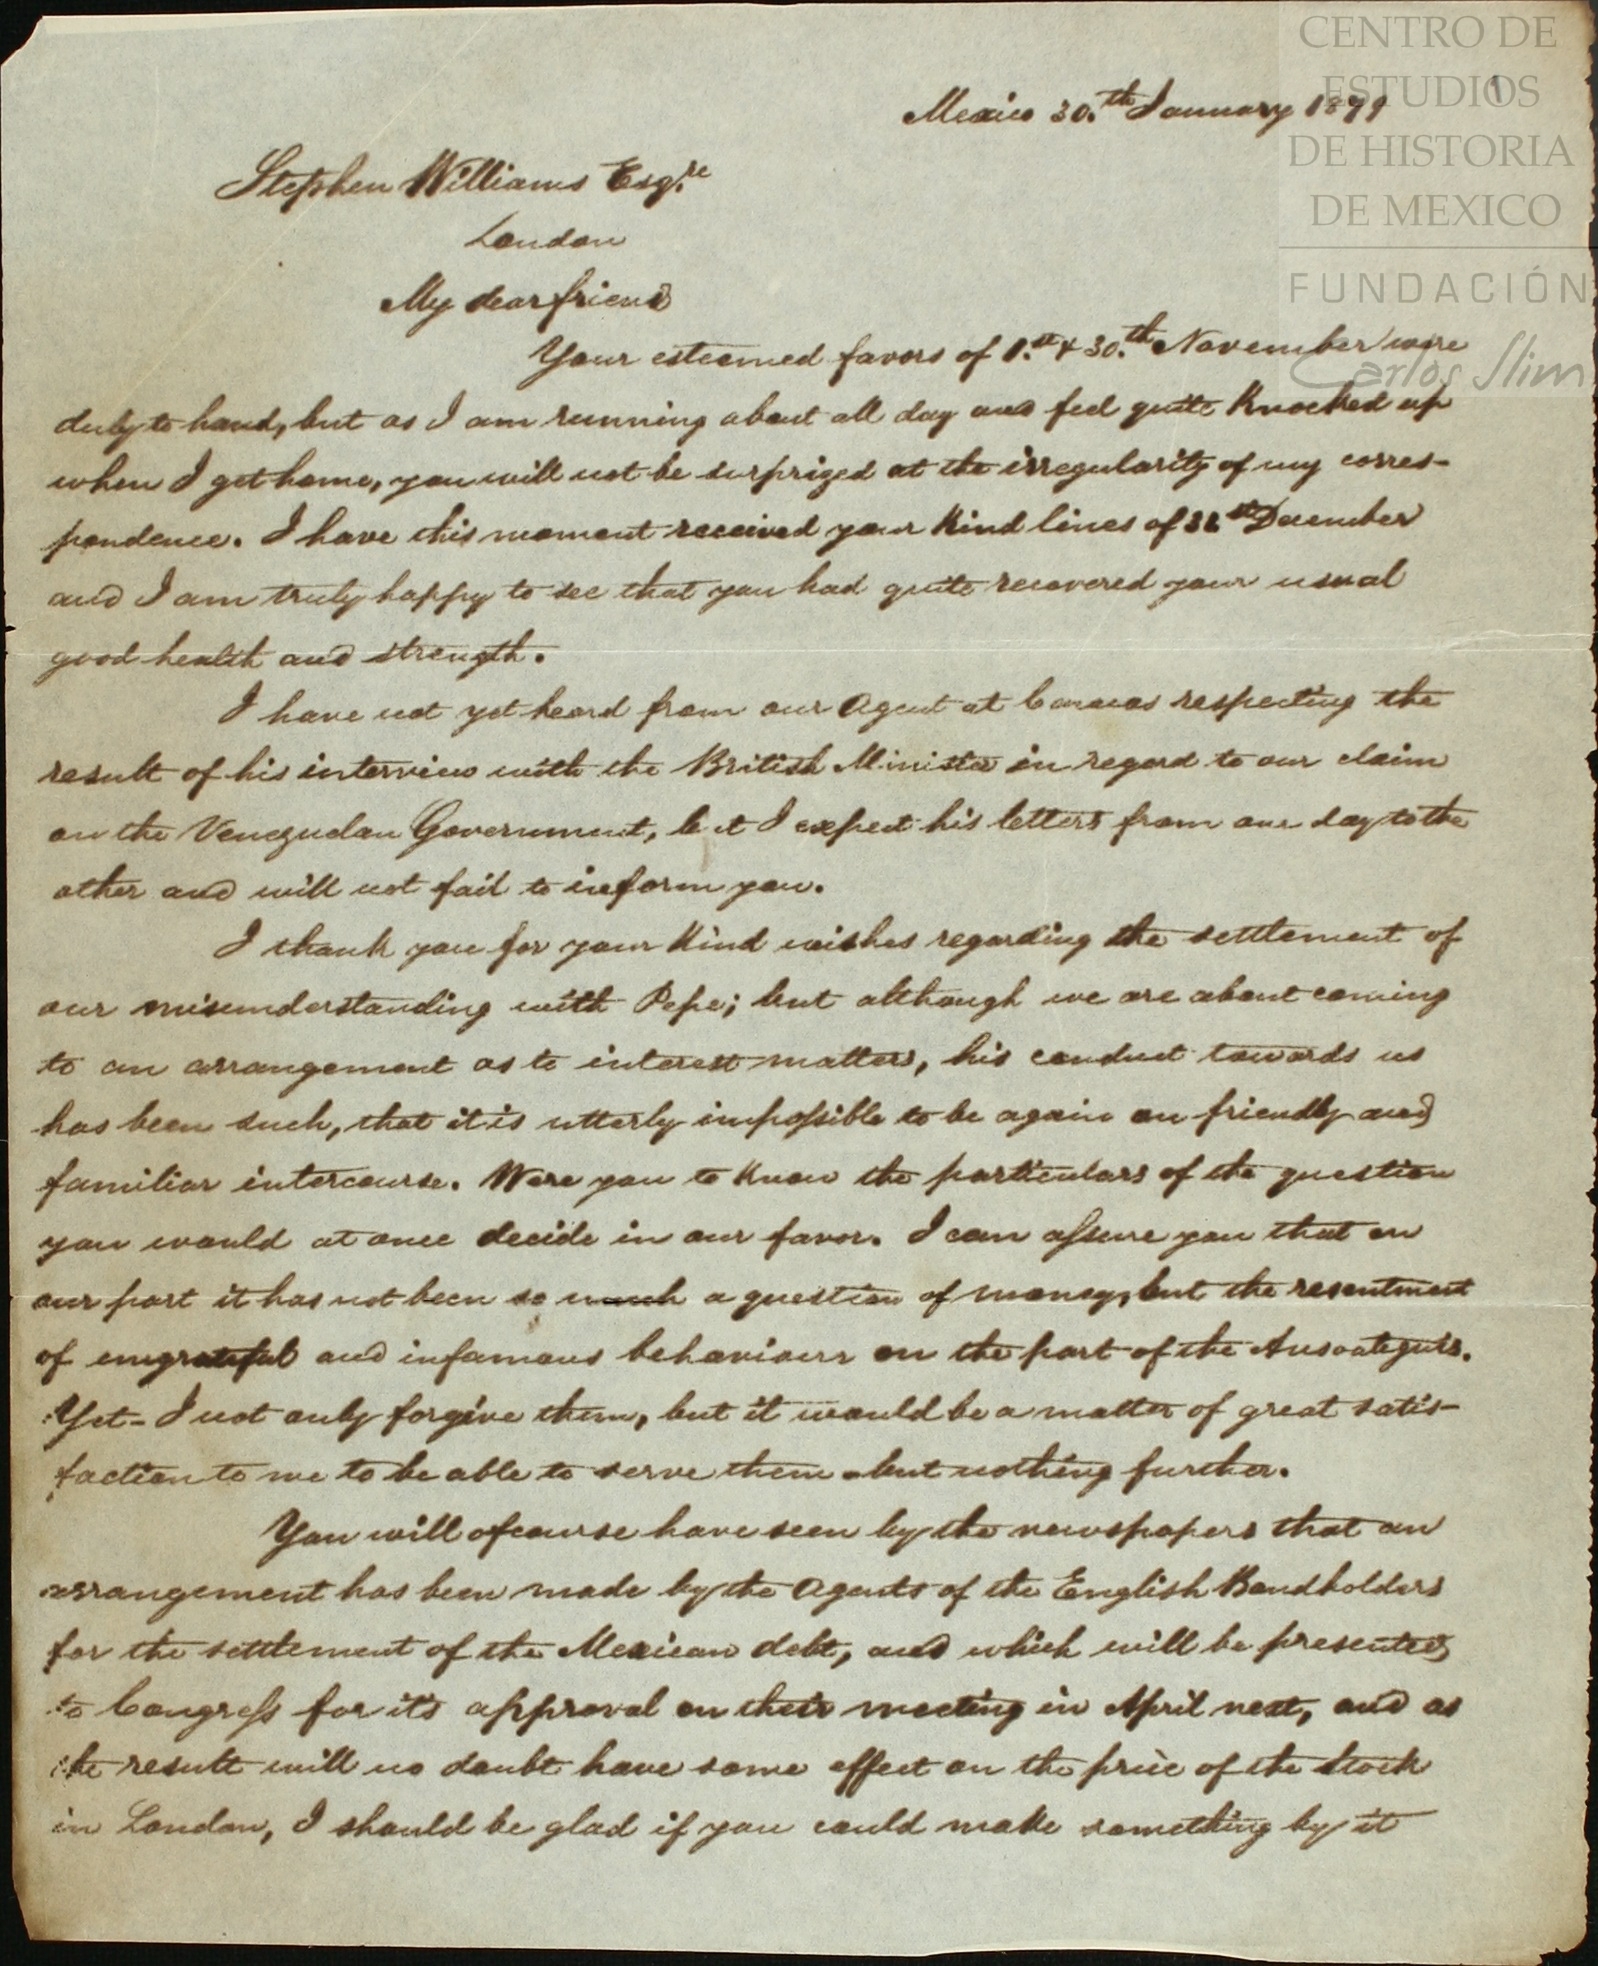 CENTRO DE
ESTUDIOS
DE HISTORIA
DE MEXICO
FUNDACIÓN
Carlos Slim
1
Mexico 30.th January 1879
Stephen Williams Esqre
London
My dear friend
Your esteemed favors of 1.st & 30.th November were
duly to hand, but as I am running about all day and feel quite knocked up
when I get home, you will not be surprized at the irregularity of my corres-
pondence. I have this moment received your kind lines of st December
and I am truly happy to see that you had quite recovered your usual
good health and strength.
I have not yet heard from our Agent at Caracas respecting the
result of his interview with the British Minister in regard to our claim
on the Venezuelan Government, but I expect his letters from one day to the
other and will not fail to inform you.
I thank you for your kind wishes regarding the settlement of
our misunderstanding with Pepe; but although we are about coming
to an arrangement as to interest matters, his conduct towards us
has been such, that it is utterly impossible to be again on friendly and
familiar intercourse. Were you to know the particulars of the question
you would at once decide in our favor. I can assure you that on
our part it has not been so much a question of money, but the resentment
of ungrateful and infamous behaviour on the part of the Ansoateguis.
Yet - I not only forgive them, but it would be a matter of great satis-
faction to me to be able to serve them - but nothing further.
You will of course have seen by the newspapers that an
arrangement has been made by the Agents of the English Bondholders
for the settlement of the Mexican debt, and which will be presented
to Congress for it's approval on their meeting in April next, and as
the result will no doubt have some effect on the price of the stock
in London, I should be glad if you could make something by it